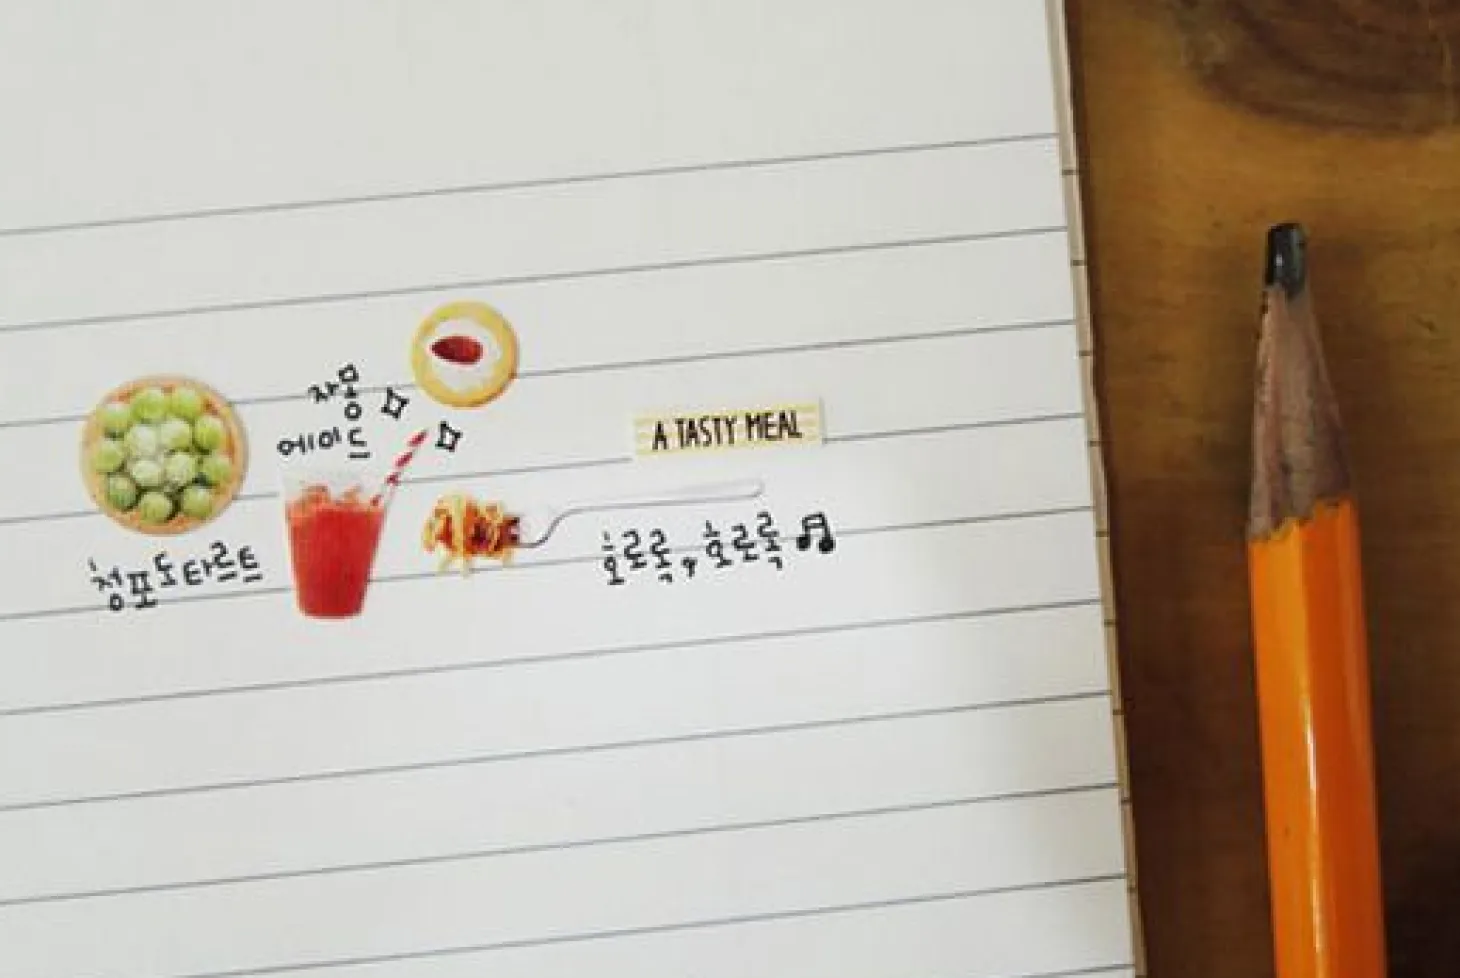 자몽
에이드
A TASTY MEAL
청포도타르트
호로록, 호로록